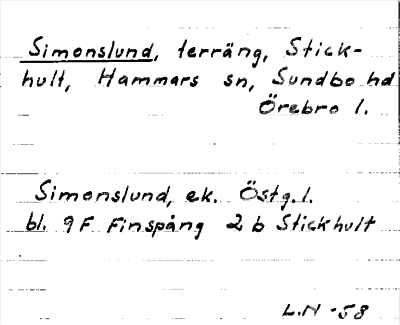 Simonslund, terräng, Stick-
hult, Hammars sn, Sundbo hd
Örebro l.
Simonslund, ek. Östg.l.
bl. 9F Finspång 2b Stickhult
L.N -58